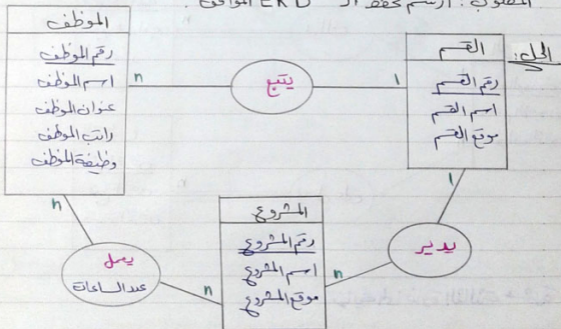 المطلوب: ارسم مخطط الـ ERD الموافق.
الحل:
الموظف
رقم الموظف
اسم الموظف
عنوان الموظف
راتب الموظف
وظيفة الموظف
n
يتبع
1
القسم
رقم القسم
اسم القسم
موقع القسم
1
يدير
n
المشروع
رقم المشروع
اسم المشروع
موقع المشروع
n
يعمل
عدد الساعات
n